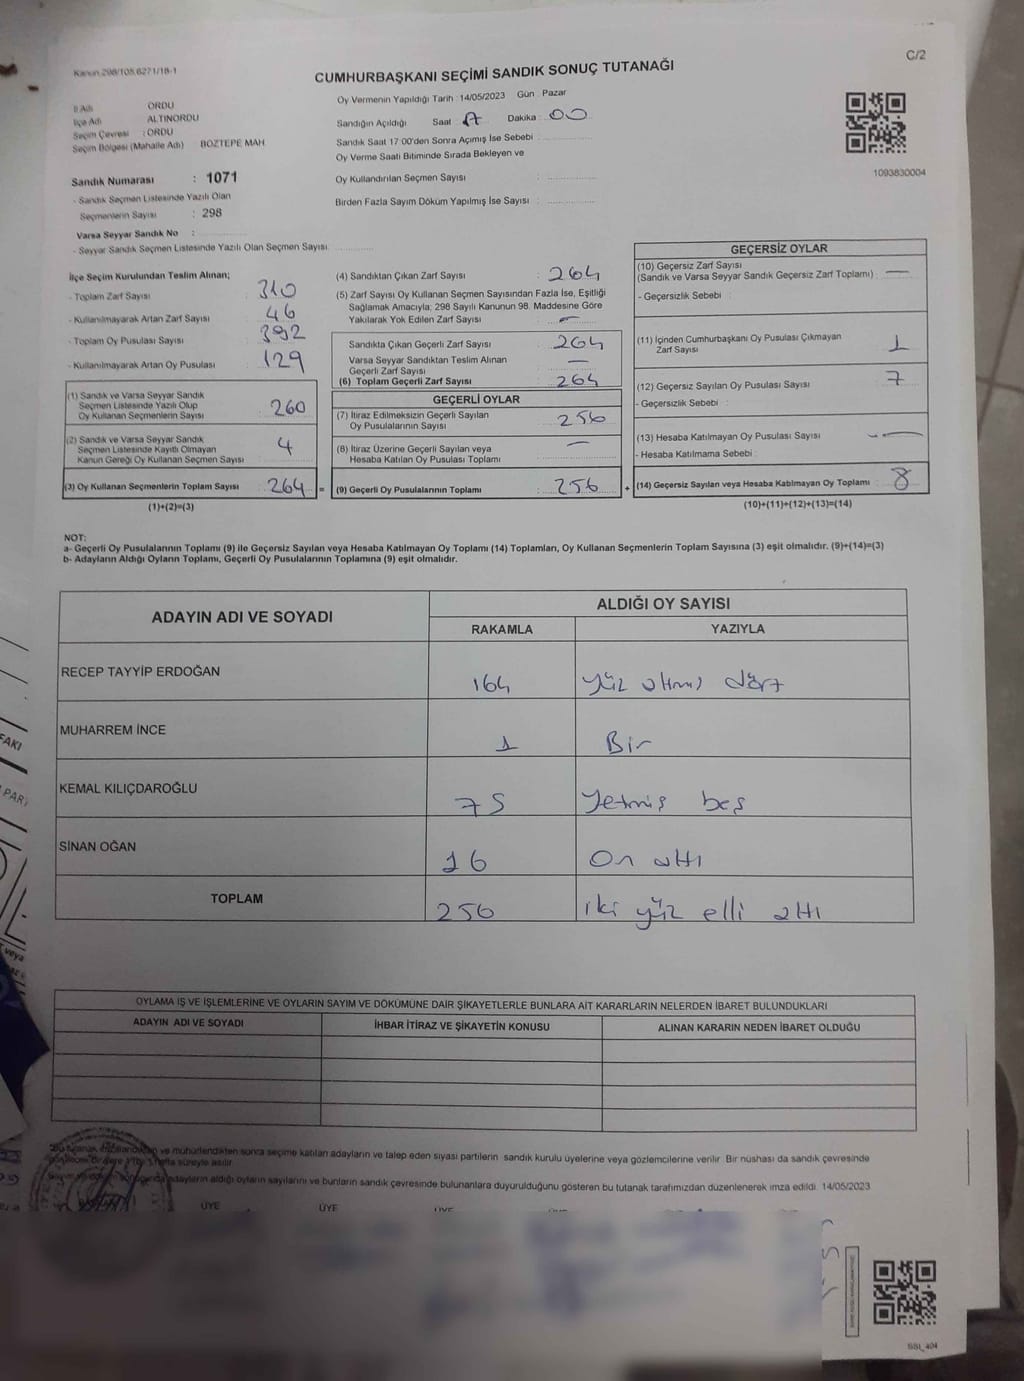 Kanun 298/105,6271/18-1
C/2
CUMHURBAŞKANI SEÇİMİ SANDIK SONUÇ TUTANAĞI
İl Adı ORDU
İlçe Adı ALTINORDU
Seçim Çevresi : ORDU
Seçim Bölgesi (Mahalle Adı) BOZTEPE MAH
Oy Vermenin Yapıldığı Tarih : 14/05/2023 Gün : Pazar
Sandığın Açıldığı Saat Dakika : 00
Sandık Saat 17:00'den Sonra Açımış İse Sebebi :
Oy Verme Saati Bitiminde Sırada Bekleyen ve
Oy Kullandırılan Seçmen Sayısı :
Birden Fazla Sayım Döküm Yapılmış İse Sayısı :
1093830004
Sandık Numarası : 1071
- Sandık Seçmen Listesinde Yazılı Olan
Seçmenlerin Sayısı : 298
Varsa Seyyar Sandık No :
- Seyyar Sandık Seçmen Listesinde Yazılı Olan Seçmen Sayısı:
İlçe Seçim Kurulundan Teslim Alınan;
- Toplam Zarf Sayısı : 310
- Kullanılmayarak Artan Zarf Sayısı : 46
- Toplam Oy Pusulası Sayısı : 392
- Kullanılmayarak Artan Oy Pusulası : 129
(1) Sandık ve Varsa Seyyar Sandık
Seçmen Listesinde Yazılı Olup
Oy Kullanan Seçmenlerin Sayısı : 260
(2) Sandık ve Varsa Seyyar Sandık
Seçmen Listesinde Kayıtlı Olmayan
Kanun Gereği Oy Kullanan Seçmen Sayısı : 4
(3) Oy Kullanan Seçmenlerin Toplam Sayısı : 264 =
(1)+(2)=(3)
(4) Sandıktan Çıkan Zarf Sayısı : 264
(5) Zarf Sayısı Oy Kullanan Seçmen Sayısından Fazla İse, Eşitliği
Sağlamak Amacıyla; 298 Sayılı Kanunun 98. Maddesine Göre
Yakılarak Yok Edilen Zarf Sayısı : —
Sandıkta Çıkan Geçerli Zarf Sayısı : 264
Varsa Seyyar Sandıktan Teslim Alınan
Geçerli Zarf Sayısı : —
(6) Toplam Geçerli Zarf Sayısı : 264
GEÇERLİ OYLAR
(7) İtiraz Edilmeksizin Geçerli Sayılan
Oy Pusulalarının Sayısı : 256
(8) İtiraz Üzerine Geçerli Sayılan veya
Hesaba Katılan Oy Pusulası Toplamı : —
(9) Geçerli Oy Pusulalarının Toplamı : 256 +
GEÇERSİZ OYLAR
(10) Geçersiz Zarf Sayısı
(Sandık ve Varsa Seyyar Sandık Geçersiz Zarf Toplamı) : —
- Geçersizlik Sebebi :
(11) İçinden Cumhurbaşkanı Oy Pusulası Çıkmayan
Zarf Sayısı : 1
(12) Geçersiz Sayılan Oy Pusulası Sayısı : 7
- Geçersizlik Sebebi :
(13) Hesaba Katılmayan Oy Pusulası Sayısı : —
- Hesaba Katılmama Sebebi :
(14) Geçersiz Sayılan veya Hesaba Katılmayan Oy Toplamı : 8
(10)+(11)+(12)+(13)=(14)
NOT:
a- Geçerli Oy Pusulalarının Toplamı (9) ile Geçersiz Sayılan veya Hesaba Katılmayan Oy Toplamı (14) Toplamları, Oy Kullanan Seçmenlerin Toplam Sayısına (3) eşit olmalıdır. (9)+(14)=(3)
b- Adayların Aldığı Oyların Toplamı, Geçerli Oy Pusulalarının Toplamına (9) eşit olmalıdır.
ADAYIN ADI VE SOYADI ALDIĞI OY SAYISI
RAKAMLA YAZIYLA
RECEP TAYYİP ERDOĞAN 164 yüz altmış dört
MUHARREM İNCE 1 Bir
KEMAL KILIÇDAROĞLU 75 Yetmiş beş
SİNAN OĞAN 16 On altı
TOPLAM 256 iki yüz elli altı
OYLAMA İŞ VE İŞLEMLERİNE VE OYLARIN SAYIM VE DÖKÜMÜNE DAİR ŞİKAYETLERLE BUNLARA AİT KARARLARIN NELERDEN İBARET BULUNDUKLARI
ADAYIN ADI VE SOYADI İHBAR İTİRAZ VE ŞİKAYETİN KONUSU ALINAN KARARIN NEDEN İBARET OLDUĞU
ve mühürlendikten sonra seçime katılan adayların ve talep eden siyasi partilerin sandık kurulu üyelerine veya gözlemcilerine verilir. Bir nüshası da sandık çevresinde
hafta süreyle asılır.
adayların aldığı oyların sayılarını ve bunların sandık çevresinde bulunanlara duyurulduğunu gösteren bu tutanak tarafımızdan düzenlenerek imza edildi. 14/05/2023
ÜYE ÜYE ÜYE
FAKI
PARTİ
veya